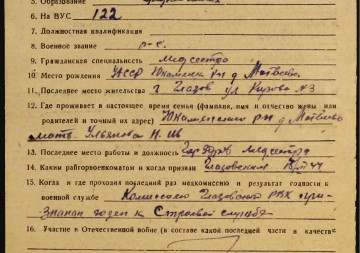 5. Образование
6. На ВУС 122
7. Должностная квалификация
8. Военное звание р-с.
9. Гражданская специальность медсестра
10. Место рождения УАССР Юкаменск. р-н д Матвеево
11. Последнее место жительства г Глазов ул Кирова №3
12. Где проживает в настоящее время семья (фамилия, имя и отчество жены или
родителей и точный их адрес) Юкаменский р-н д Матвеево
мать Ульянова Н. Ив
13. Последнее место работы и должность медсестра
14. Каким райгорвоенкоматом и когда призван Глазовским 44
15. Когда и где проходил последний раз медкомиссию и результат годности к
военной службе Комиссией Глазовского РВК при-
знанан годен к Строевой службе
16. Участие в Отечественной войне (в составе какой последней части в качеств